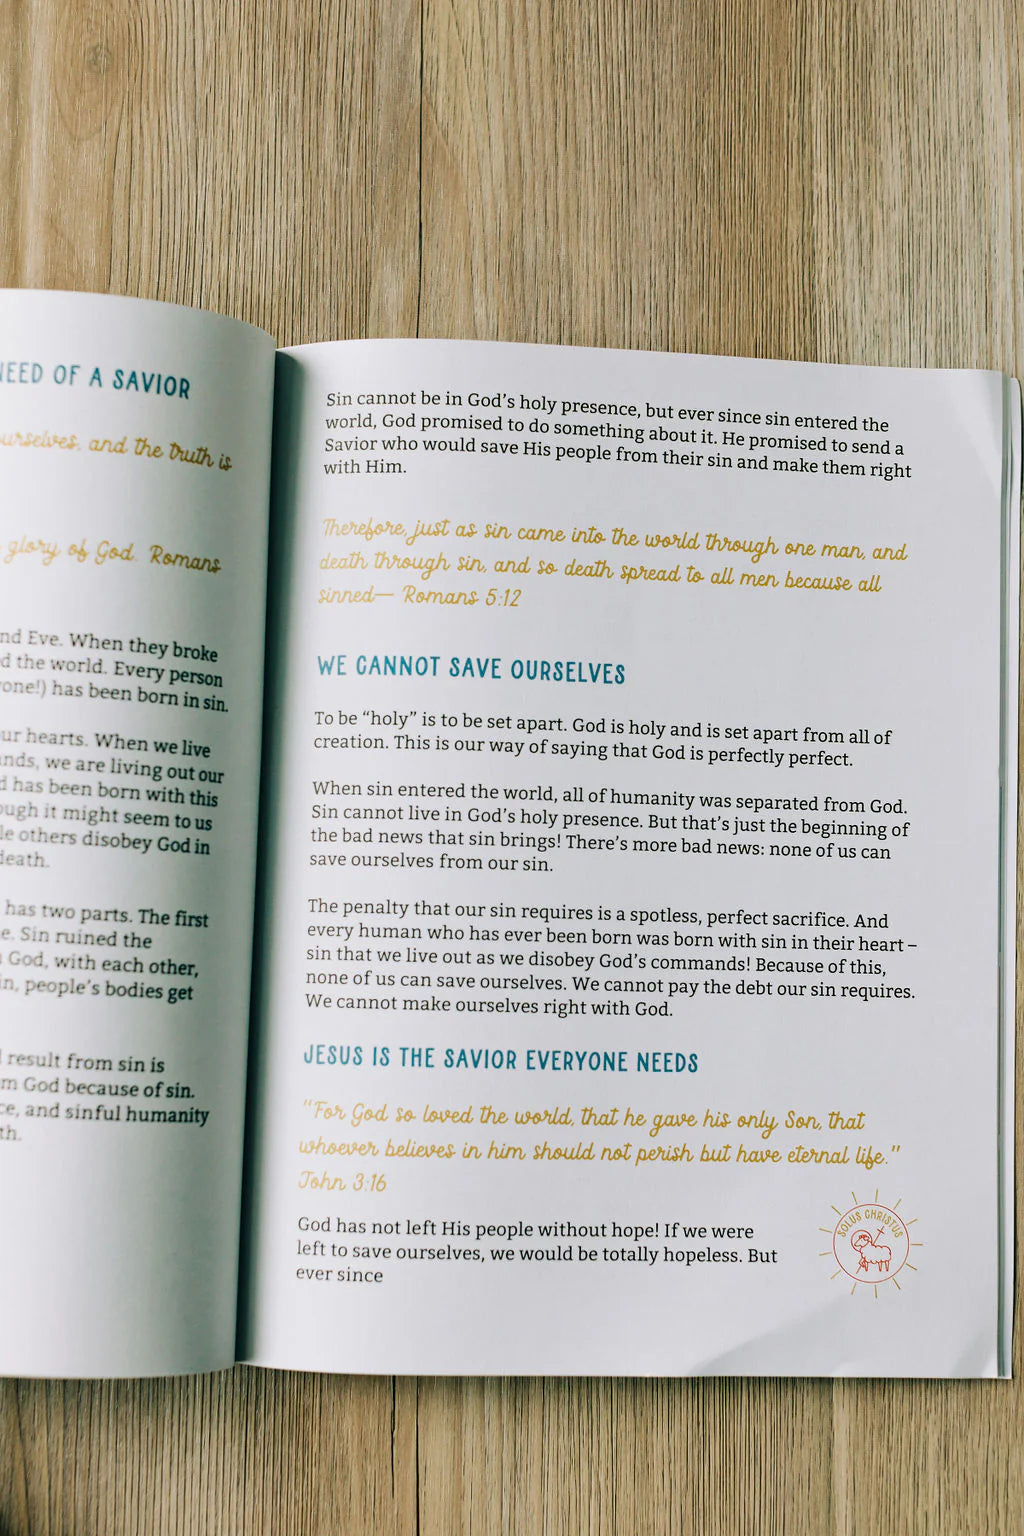 NEED OF A SAVIOR
ourselves, and the truth is
glory of God. Romans
and Eve. When they broke
the world. Every person
has been born in sin.
our hearts. When we live
we are living out our
has been born with this
might seem to us
others disobey God in
death.
has two parts. The first
Sin ruined the
God, with each other,
people's bodies get
result from sin is
God because of sin.
and sinful humanity
Sin cannot be in God's holy presence, but ever since sin entered the
world, God promised to do something about it. He promised to send a
Savior who would save His people from their sin and make them right
with Him.
Therefore, just as sin came into the world through one man, and
death through sin, and so death spread to all men because all
sinned— Romans 5:12
WE CANNOT SAVE OURSELVES
To be “holy” is to be set apart. God is holy and is set apart from all of
creation. This is our way of saying that God is perfectly perfect.
When sin entered the world, all of humanity was separated from God.
Sin cannot live in God's holy presence. But that's just the beginning of
the bad news that sin brings! There's more bad news: none of us can
save ourselves from our sin.
The penalty that our sin requires is a spotless, perfect sacrifice. And
every human who has ever been born was born with sin in their heart –
sin that we live out as we disobey God's commands! Because of this,
none of us can save ourselves. We cannot pay the debt our sin requires.
We cannot make ourselves right with God.
JESUS IS THE SAVIOR EVERYONE NEEDS
"For God so loved the world, that he gave his only Son, that
whoever believes in him should not perish but have eternal life."
John 3:16
God has not left His people without hope! If we were
left to save ourselves, we would be totally hopeless. But
ever since
SOLUS CHRISTUS